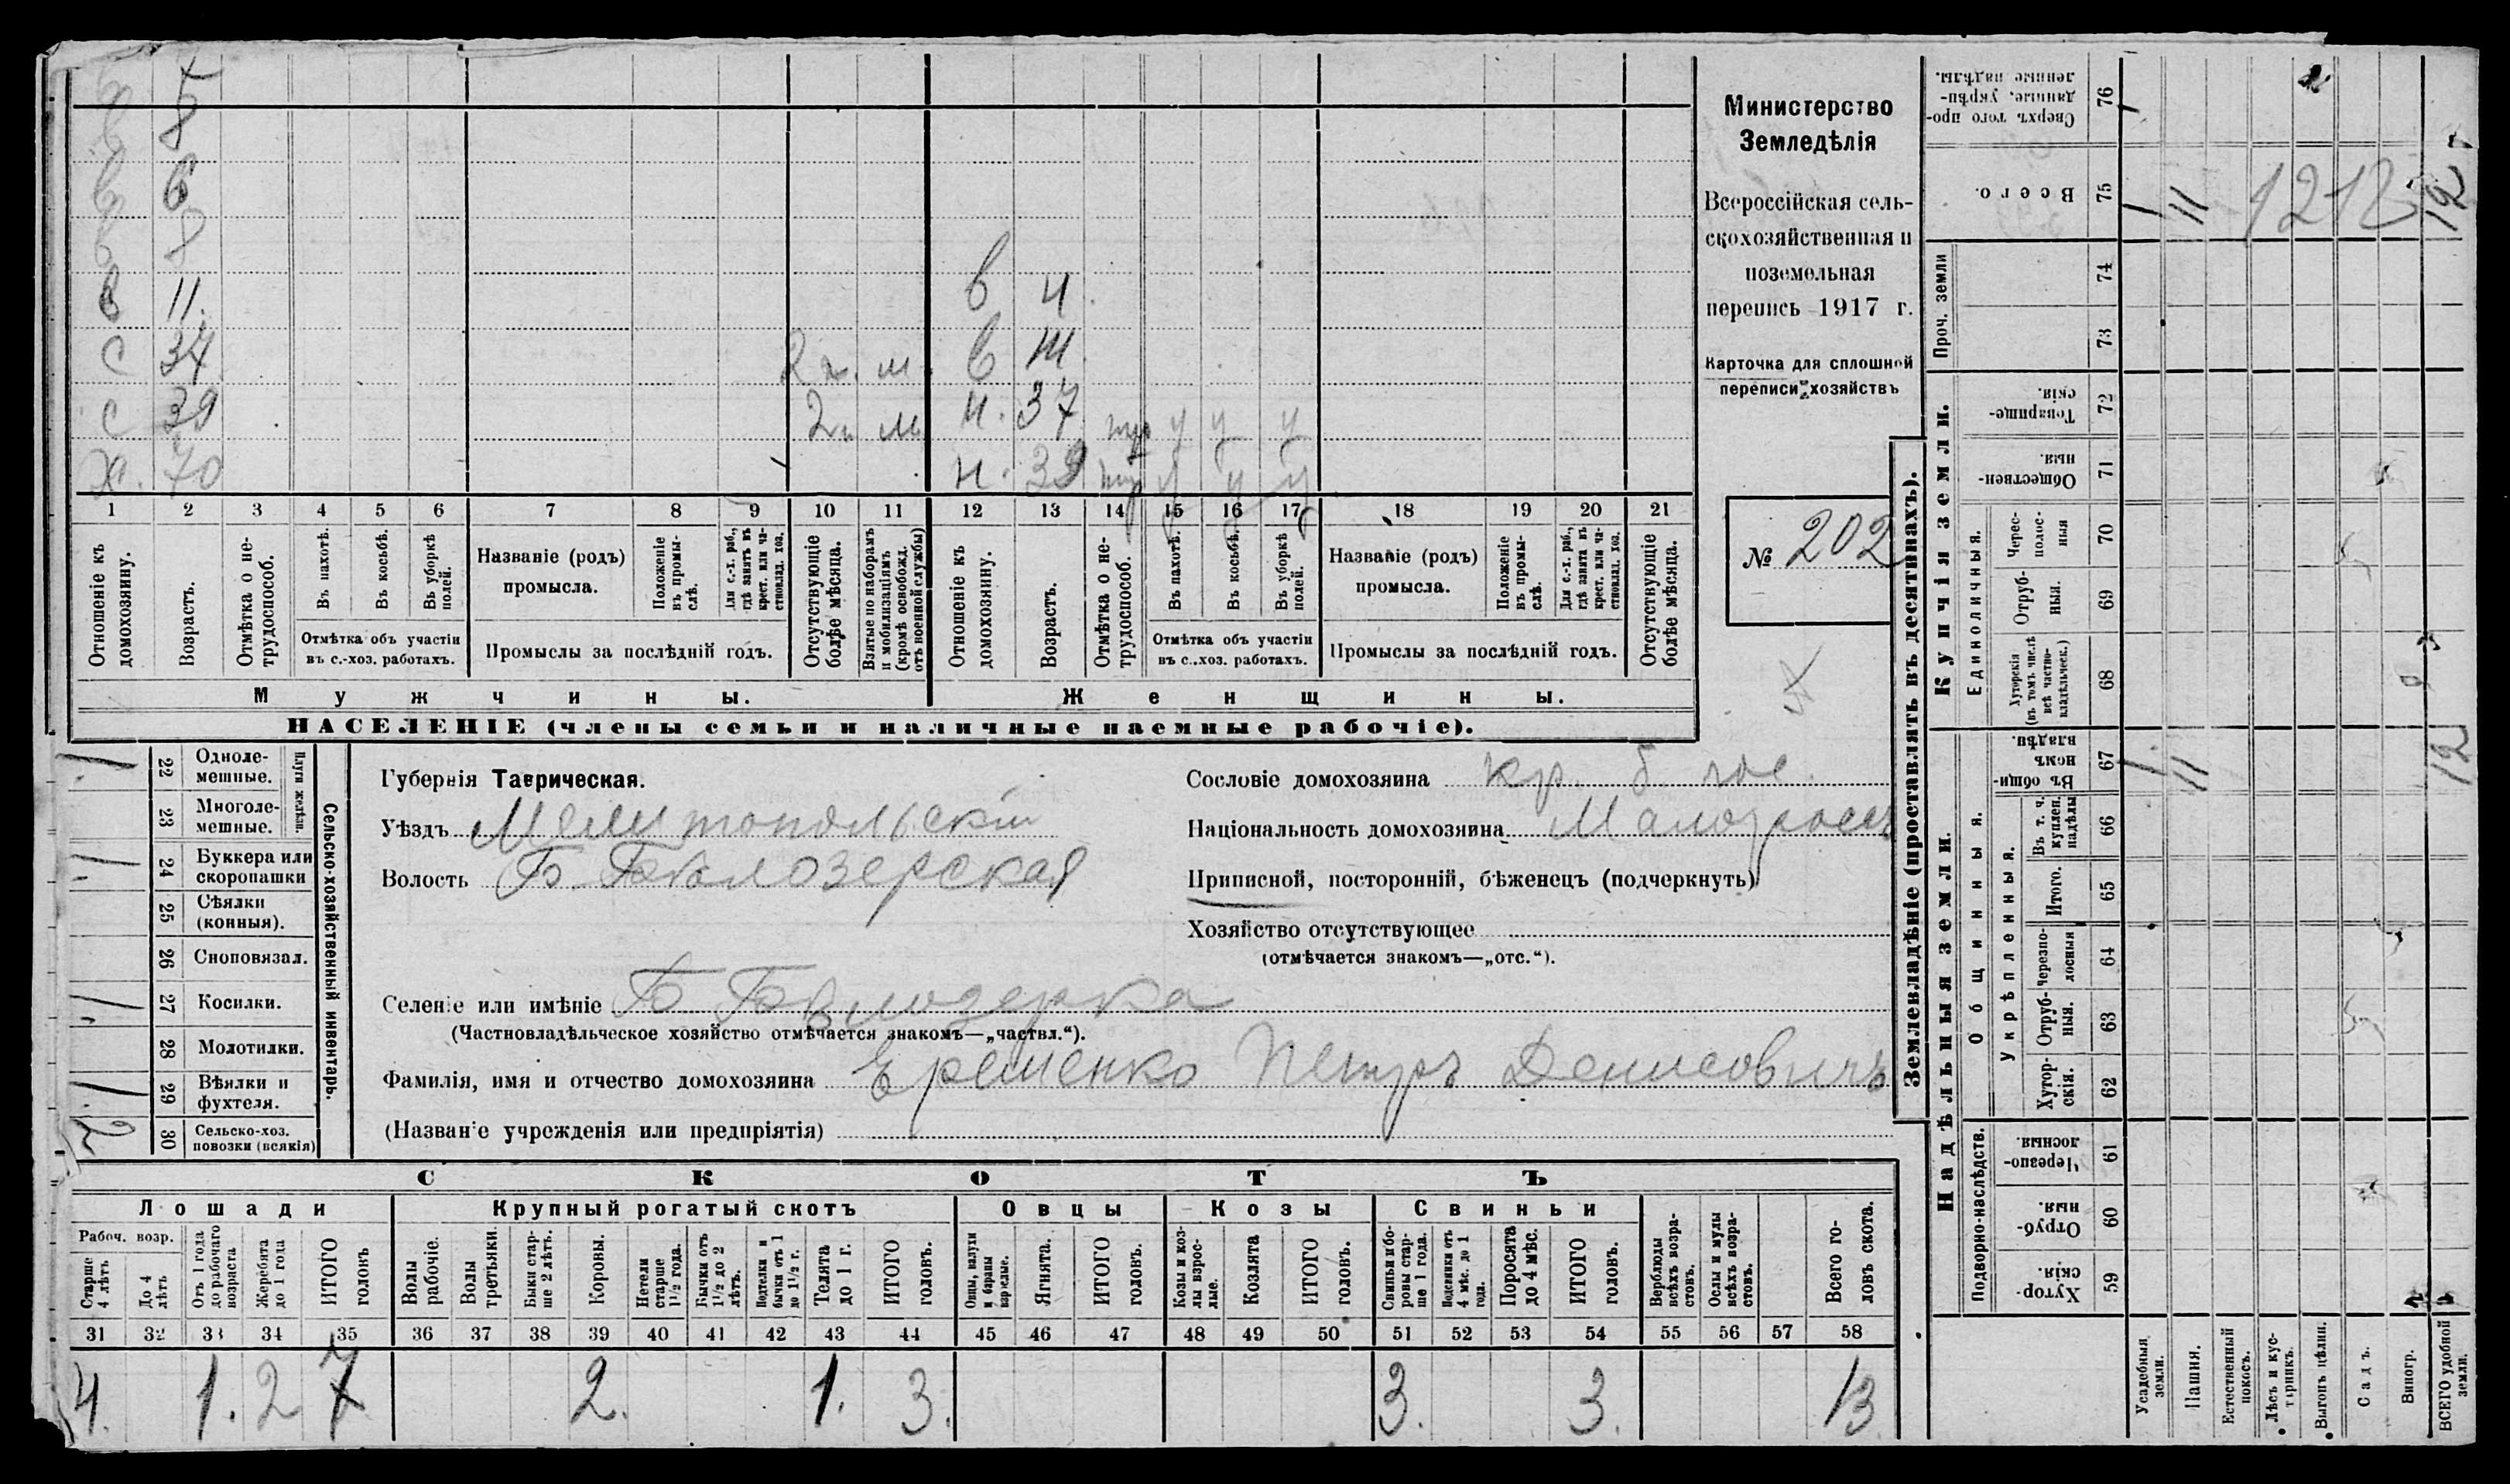 в 5
в 8
в 6
в 8
в 11. в 4
с 34 2 г. м. в Ш
с 39 2 г. м. н. 37 тр у у у
х. 70 н. 39 тр у у у
1 2 3 4 5 6 7 8 9 10 11 12 13 14 15 16 17 18 19 20 21
Отношеніе къ домохозяину.
Возрастъ.
Отмѣтка о не-трудоспособ.
Въ пахотѣ.
Въ косьбѣ.
Въ уборкѣ полей.
Отмѣтка объ участіи
въ с.-хоз. работахъ.
Названіе (родъ)
промысла.
Положеніе въ промы-слѣ.
Для с.-х. раб., гдѣ занятъ въ крест. или ча-стновлад. хоз.
Промыслы за послѣдній годъ.
Отсутствующіе болѣе мѣсяца.
Взятые по наборамъ и мобилизаціямъ (кромѣ освобожд. отъ военной службы)
Отношеніе къ домохозяину.
Возрастъ.
Отмѣтка о не-трудоспособ.
Въ пахотѣ.
Въ косьбѣ.
Въ уборкѣ полей.
Отмѣтка объ участіи
въ с..хоз. работахъ.
Названіе (родъ)
промысла.
Положеніе въ промы-слѣ.
Для с.-х. раб., гдѣ занятъ въ крест. или ча-стновлад. хоз.
Промыслы за послѣдній годъ.
Отсутствующіе болѣе мѣсяца.
Мужчины.
Женщины.
НАСЕЛЕНІЕ (члены семьи и наличные наемные рабочіе).
Министерство
Земледѣлія
Всероссійская сель-
скохозяйственная и
поземельная
перепись 1917 г.
Карточка для сплошной
переписи хозяйствъ
№ 202
Сельско-хозяйственный инвентарь.
Плуги желѣзн.
22 Одноле-
мешные.
23 Многоле-
мешные.
24 Буккера или
скоропашки
25 Сѣялки
(конныя).
26 Сноповязал.
27 Косилки.
28 Молотилки.
29 Вѣялки и
фухтеля.
30 Сельско-хоз.
повозки (всякія)
Губернія Таврическая.
Уѣздъ Мелитопольскій
Волость Б. Бѣлозерская
Селеніе или имѣніе Б Бѣлозерка
(Частновладѣльческое хозяйство отмѣчается знакомъ—„частвл.“).
Фамилія, имя и отчество домохозяина Еременко Петръ Денисовичъ
(Названіе учрежденія или предпріятія)
Сословіе домохозяина кр. б. гос.
Національность домохозяина Малоросъ
Приписной, посторонній, бѣженецъ (подчеркнуть)
Хозяйство отсутствующее
(отмѣчается знакомъ—„отс.“).
СКОТЪ
Лошади Крупный рогатый скотъ Овцы Козы Свиньи
Рабоч. возр.
Старше 4 лѣтъ
До 4 лѣтъ
Отъ 1 года до рабочаго возраста
Жеребята до 1 года
ИТОГО головъ
Волы рабочіе.
Волы третьяки.
Быки стар-ше 2 лѣтъ.
Коровы.
Нетели старше 1½ года.
Бычки отъ 1½ до 2 лѣтъ.
Подтелки и бычки отъ 1 до 1½ г.
Телята до 1 г.
ИТОГО головъ.
Овцы, валухи и бараны взрослые.
Ягнята.
ИТОГО головъ.
Козы и коз-лы взрос-лые.
Козлята
ИТОГО головъ.
Свиньи и бо-ровы стар-ше 1 года.
Подсвинки отъ 4 мѣс. до 1 года.
Поросята до 4 мѣс.
ИТОГО головъ.
Верблюды всѣхъ возра-стовъ.
Ослы и мулы всѣхъ возра-стовъ.
Всего го-ловъ скота.
31 32 33 34 35 36 37 38 39 40 41 42 43 44 45 46 47 48 49 50 51 52 53 54 55 56 57 58
4. 1. 2 7 2. 1. 3. 3. 3. 13
Землевладѣніе (проставлять въ десятинахъ).
Купчія земли.
Надѣльныя земли.
Сверхъ того про-данные, укрѣп-ленные надѣлы. 76
Всего. 75 1 11 12 12 12
Проч. земли 74
73
Товарище-скія. 72
Обществен-ныя. 71
Единоличныя.
Черес-полос-ныя 70
Отруб-ныя. 69
Хуторскія (въ томъ числѣ всѣ частно-владѣльческ.) 68
Общинныя.
Въ общин-номъ владѣн. 67 1 11 12
Укрѣпленныя.
Въ т. ч. куплен. надѣлы 66
Итого. 65
Черезпо-лосныя 64
Отруб-ныя. 63
Хутор-скія. 62
Подворно-наслѣдств.
Черезпо-лосныя. 61
Отруб-ныя. 60
Хутор-скія. 59
Усадебныя земли.
Пашня.
Естественный покосъ.
Лѣсъ и кус-тарникъ.
Выгонъ цѣлин.
Садъ.
Виногр.
ВСЕГО удобной земли.